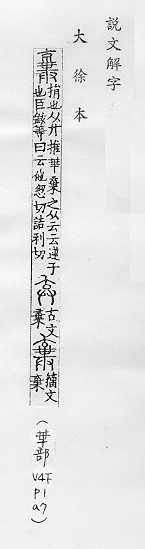 說文解字
大徐本
棄 捐也从廾推𠦒棄之从𠫓𠫓逆子
也臣鉉等曰𠫓他忽切詰利切
古文
棄
籀文
棄
(𠦒部 V4下 P1 a7)